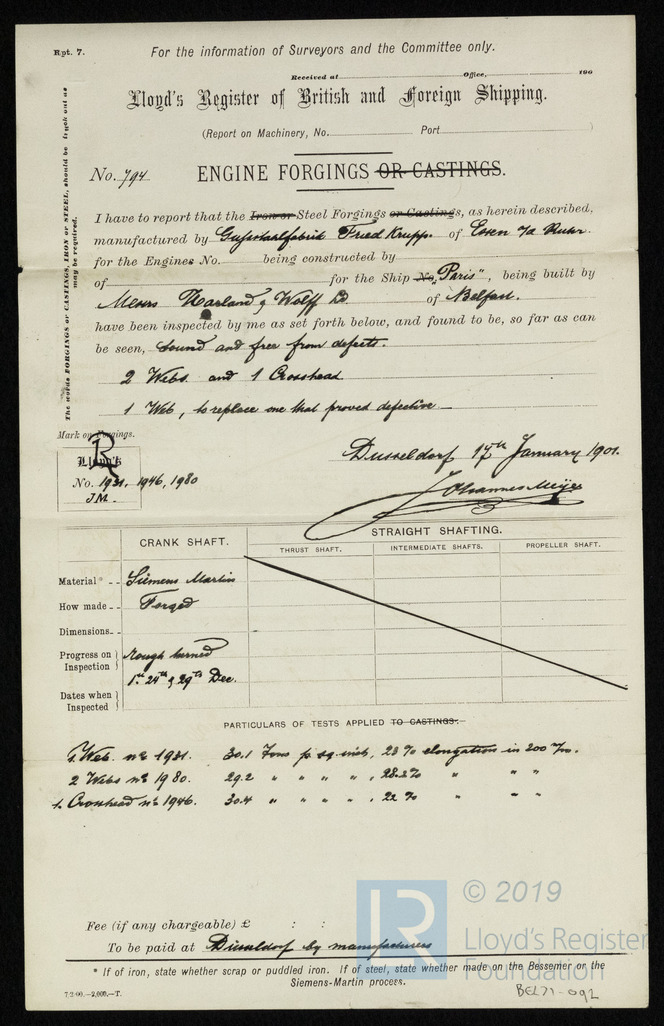 Rpt. 7.
For the information of Surveyors and the Committee only.
Received at Office, 190
Lloyd's Register of British and Foreign Shipping.
(Report on Machinery, No. Port )
No. 794 ENGINE FORGINGS OR CASTINGS.
The words FORGINGS or CASTINGS, IRON or STEEL, should be struck out as
may be required.
I have to report that the Iron or Steel Forgings or Castings, as herein described,
manufactured by Gussstahlfabrik Fried Krupp. of Essen a/d Ruhr.
for the Engines No. being constructed by
of for the Ship No. "Paris", being built by
Messrs Harland & Wolff Ld. of Belfast.
have been inspected by me as set forth below, and found to be, so far as can
be seen, sound and free from defects.
2 Webs and 1 Crosshead
1 Web, to replace one that proved defective
Mark on Forgings.
Lloyd's
R
No. 1931, 1946, 1980
J.M.
Dusseldorf 17th January 1901.
Johannes Meyer
CRANK SHAFT. STRAIGHT SHAFTING.
THRUST SHAFT. INTERMEDIATE SHAFTS. PROPELLER SHAFT.
Material* Siemens Martin
How made Forged
Dimensions
Progress on Inspection Rough turned
Dates when Inspected 1st 24th & 29th Dec.
PARTICULARS OF TESTS APPLIED TO CASTINGS:
1 Web. no 1931. 30.1 Tons p sq. inch, 23% elongation in 200 m/m.
2 Webs no 1980. 29.2 " " " " , 28.2% " " "
1 Crosshead no 1946. 30.4 " " " " , 22% " " "
Fee (if any chargeable) £ : :
To be paid at Dusseldorf by manufacturers
* If of iron, state whether scrap or puddled iron. If of steel, state whether made on the Bessemer or the
Siemens-Martin process.
7.2.00.—2,000.—T.
BEL71-092
LR
© 2019
Lloyd's Register
Foundation